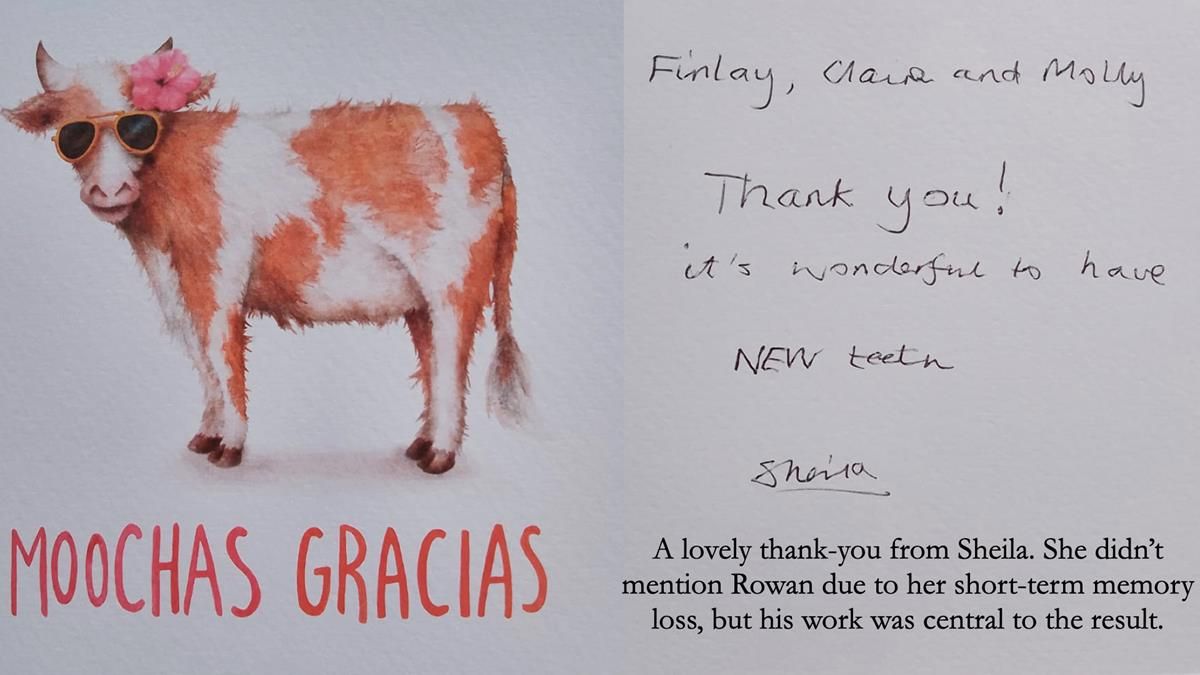 MOOCHAS GRACIAS
Finlay, Claire and Molly
Thank you!
it's wonderful to have
NEW teeth
Sheila
A lovely thank-you from Sheila. She didn't
mention Rowan due to her short-term memory
loss, but his work was central to the result.